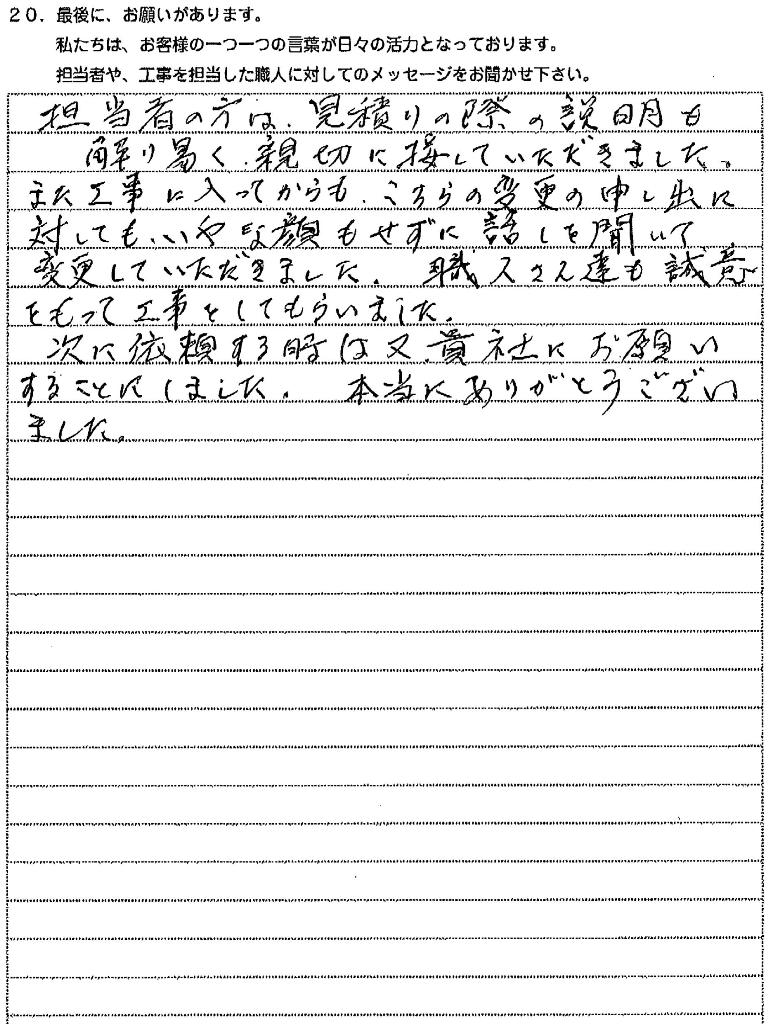 20. 最後に、お願いがあります。
私たちは、お客様の一つ一つの言葉が日々の活力となっております。
担当者や、工事を担当した職人に対してのメッセージをお聞かせ下さい。
担当者の方は、見積りの際の説明も
解り易く、親切に接していただきました。
また工事に入ってからも、こちらの変更の申し出に
対しても、いやな顔もせずに話しを聞いて
変更していただきました。職人さん達も誠意
をもって工事をしてもらいました。
次に依頼する時は又、貴社にお願い
することにしました。本当にありがとうござい
ました。